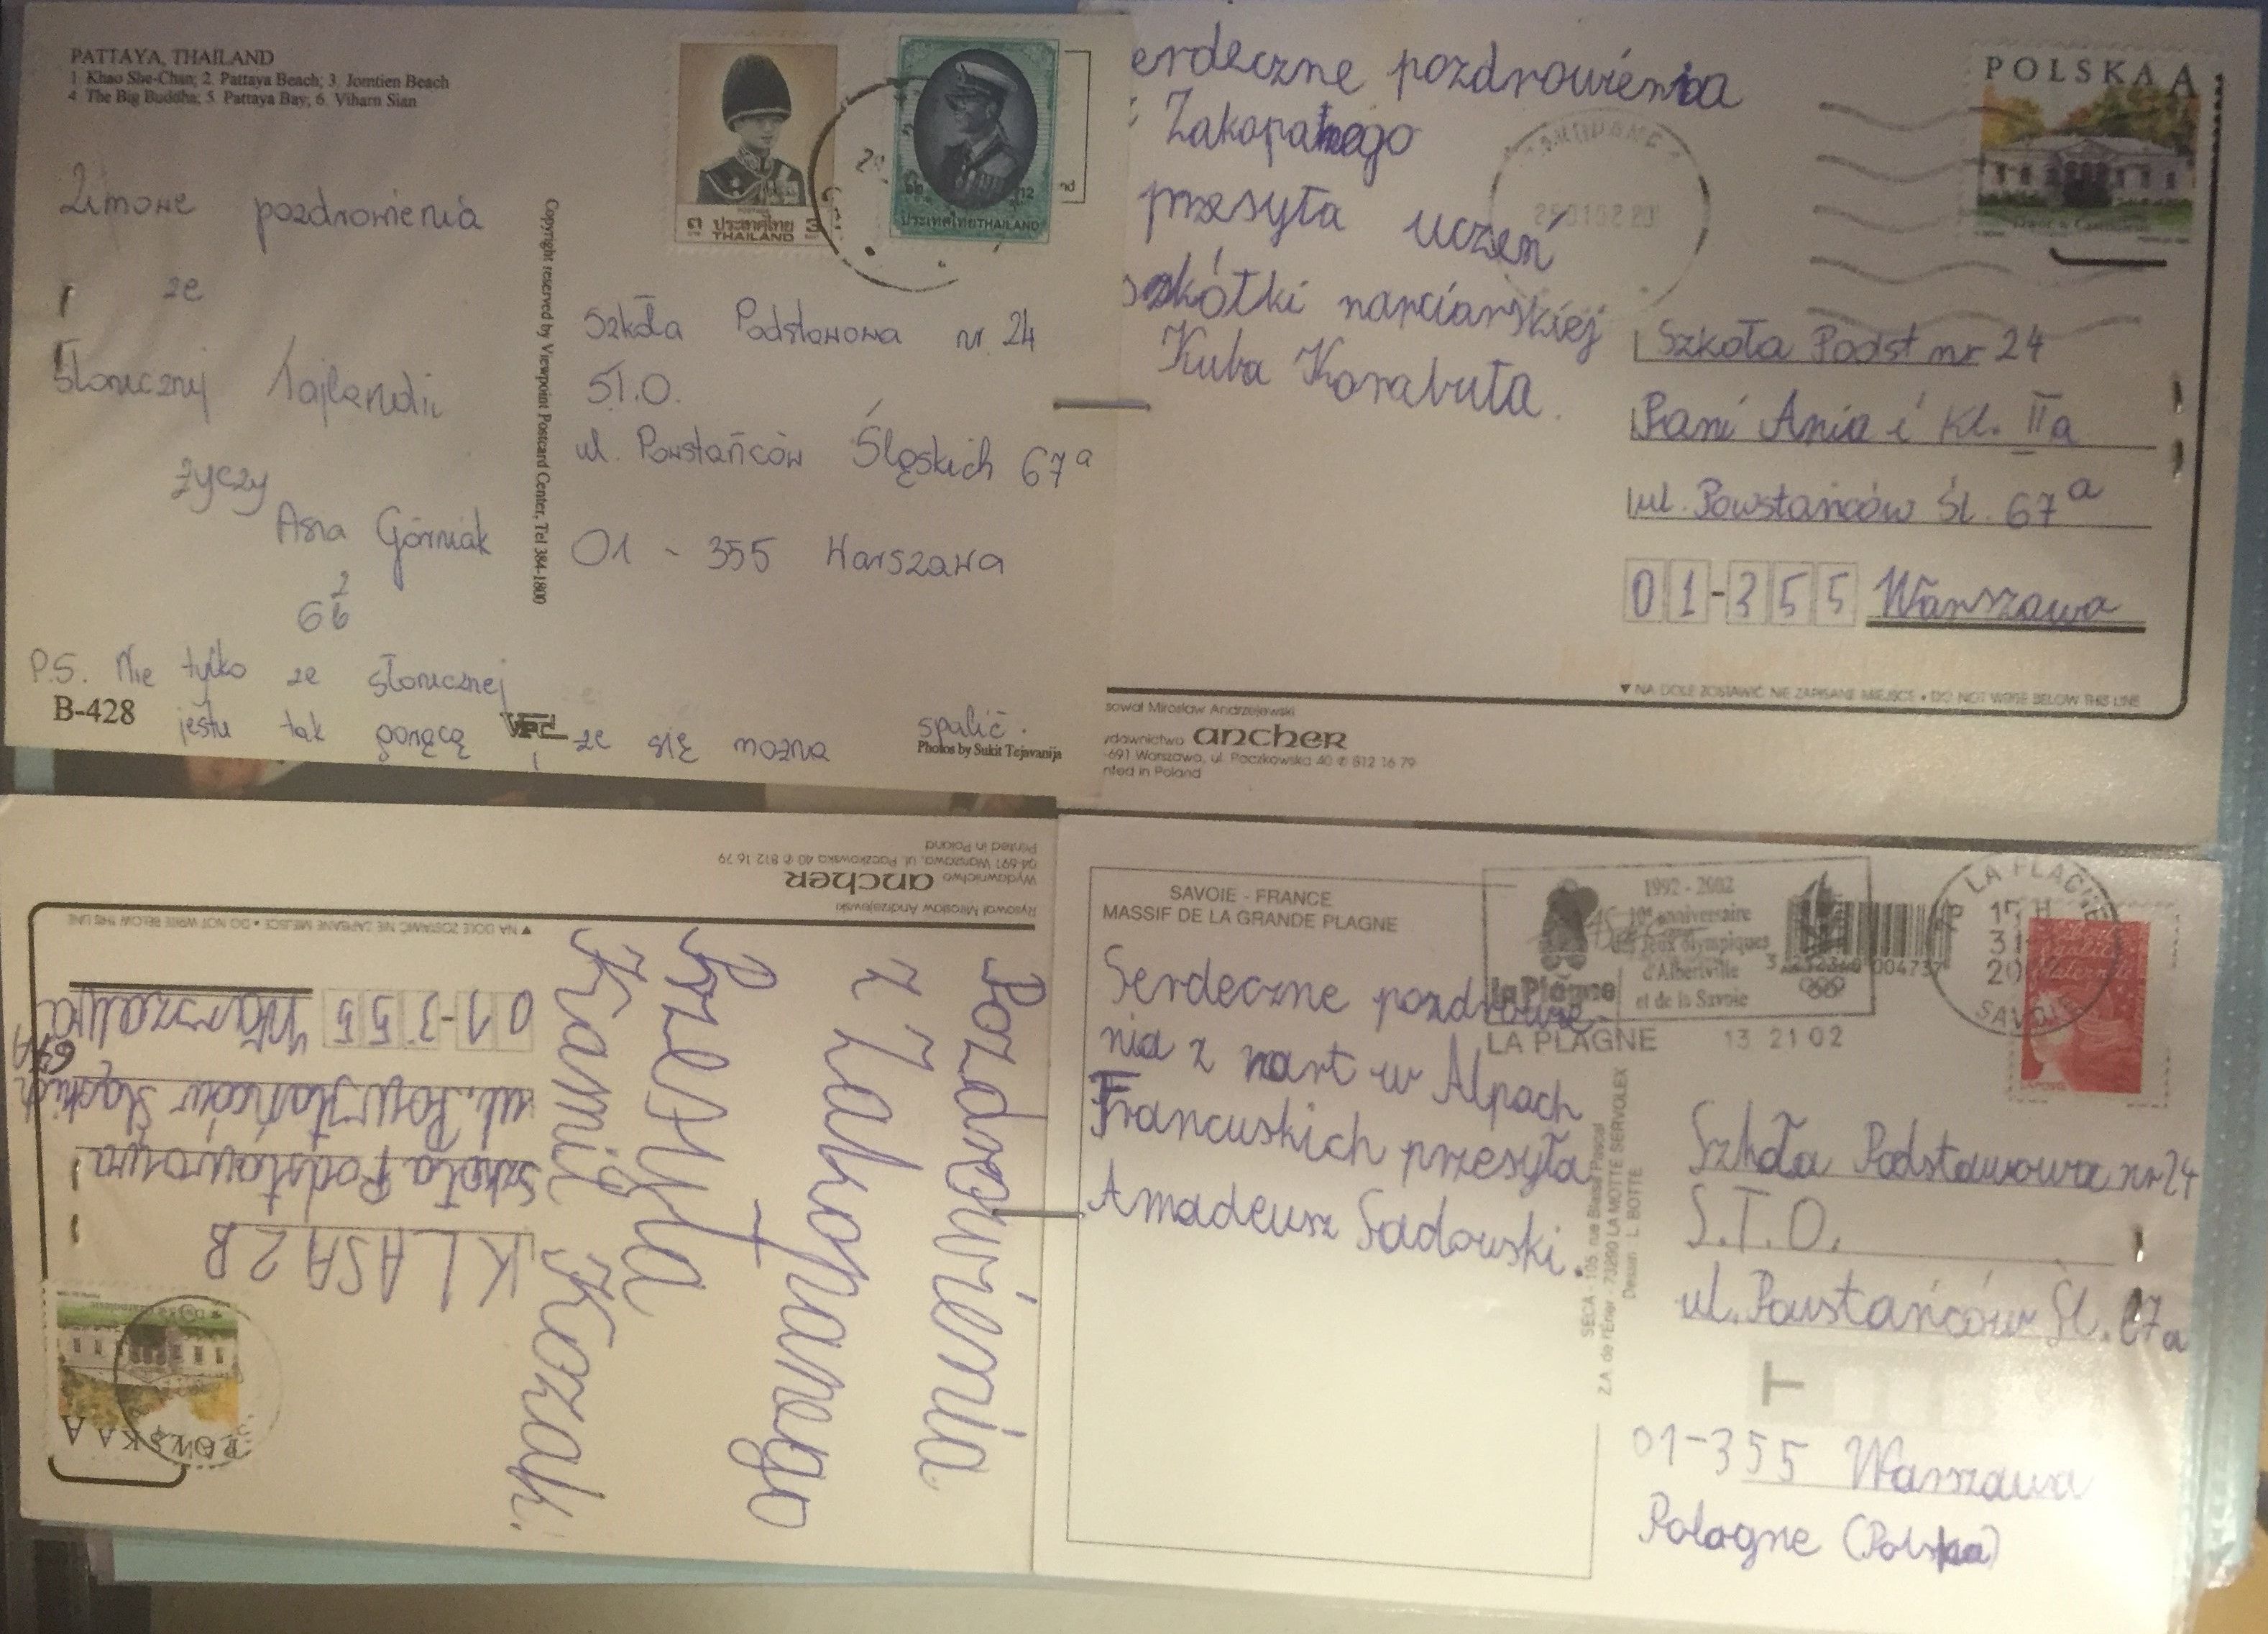 PATTAYA, THAILAND
1. Khao She-Chan; 2. Pattaya Beach; 3. Jomtien Beach
4. The Big Buddha; 5. Pattaya Bay; 6. Viharn Sian
Zimowe pozdrowienia
ze
Słonecznej Tajlandii
życzy
Asia Górniak
P.S. Nie tylko ze słonecznej
B-428
jestu tak gorąco że się można spalić.
Photos by Sukit Tejavanija
Copyright reserved by Viewpoint Postcard Center, Tel 384-1800
ประเทศไทย 3
THAILAND
12
ประเทศไทย THAILAND
Szkoła Podstawowa nr. 24
S.T.O.
ul. Powstańców Śląskich 67a
01 - 355 Warszawa
erdeczne pozdrowienia
Zakopanego
przesyła uczeń
szkółki narciarskiej
Kuba Korabuta.
POLSKA A
Szkoła Podst nr 24
Pani Ania i Kl. IIa
ul. Powstańców Śl. 67a
01-355 Warszawa
▼ NA DOLE ZOSTAWIĆ NIE ZAPISANE MIEJSCE • DO NOT WRITE BELOW THIS LINE
sował Mirosław Andrzejewski
ydawnictwo ancher
-691 Warszawa, ul. Paczkowska 40 ✆ 812 16 79
nted in Poland
Pozdrowienia
z Zakopanego
Przesyła
Kamil Kozak.
POLSKA A
KLASA 2B
Szkoła Podstawowa
ul. Powstańców Śląskich 67A
01-355 Warszawa
▼ NA DOLE ZOSTAWIĆ NIE ZAPISANE MIEJSCE • DO NOT WRITE BELOW THIS LINE
Rysował Mirosław Andrzejewski
Wydawnictwo ancher
04-691 Warszawa, ul. Paczkowska 40 ✆ 812 16 79
Printed in Poland
SAVOIE - FRANCE
MASSIF DE LA GRANDE PLAGNE
Serdeczne pozdrowie-
nia z nart w Alpach
Francuskich przesyła
Amadeusz Sadowski.
la Plagne
1992 - 2002
10e anniversaire
des Jeux olympiques
d'Albertville
et de la Savoie
LA PLAGNE 13 21 02
LA PLAGNE
15 H
31
SAVOIE
SECA - 105, rue Blaise Pascal
Z.A. de l'Erier - 73290 LA MOTTE SERVOLEX
Dessin : L. BOTTE
Szkoła Podstawowa nr 24
S.T.O.
ul. Powstańców Śl. 67a
T
01-355 Warszawa
Pologne (Polska)